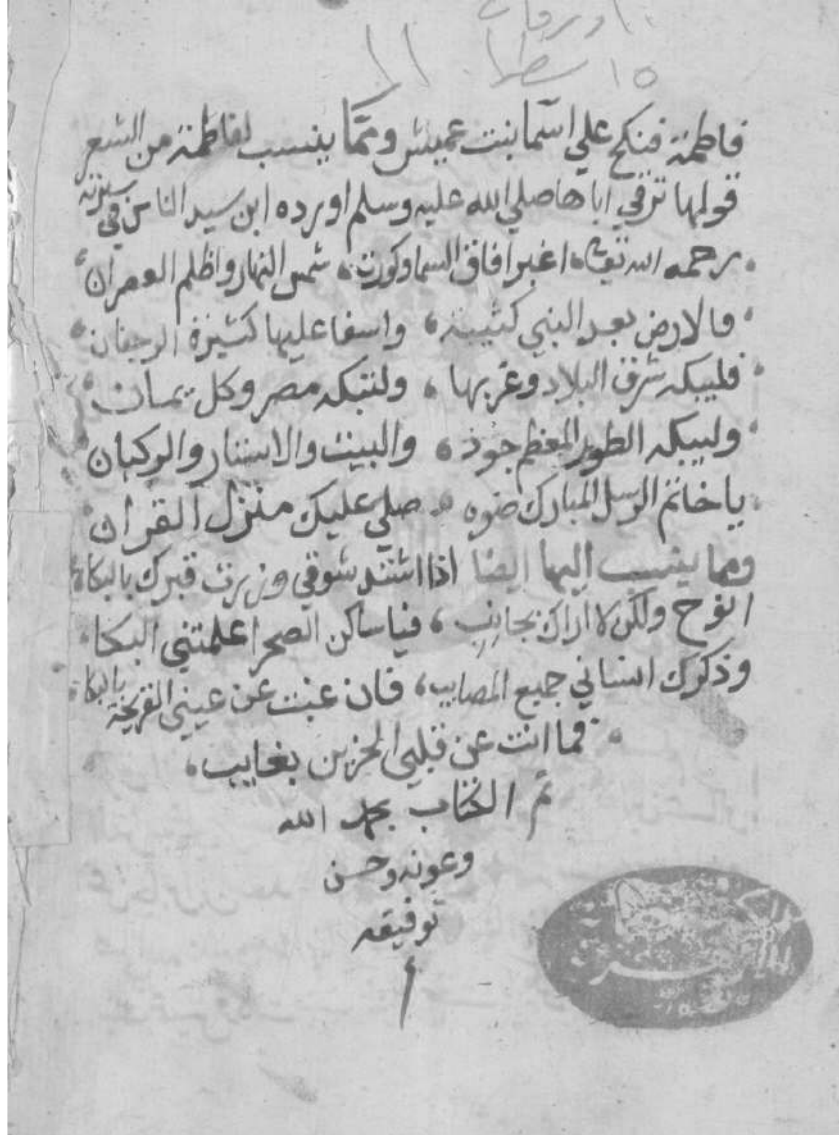 ١٠ ورقات
١٥ سطرا
فاطمة فنكح علي اسما بنت عميس ومما ينسب لفاطمة من الشعر
قولها ترثي اباها صلي الله عليه وسلم اورده ابن سيد الناس في سيرته
رحمه الله تعالى اغبر افاق السما وكورت، شمس النهار واظلم العصران
فالارض بعد النبي كئيبة، واسفا عليها كثيرة الرجفان
فليبكه شرق البلاد وغربها، ولتبكه مصر وكل يمان
وليبكه الطور المعظم جوده، والبيت والاستار والركبان
ياخاتم الرسل المبارك ضوه، صلي عليك منزل القران
ومما ينسب إليها ايضا اذا اشتد شوقي وزرت قبرك بالبكا
انوح ولكن لا اراك بجانب، فيا ساكن الصحرا علمتني البكا
وذكرك انساني جميع المصايب، فان غبت عن عيني القريحة بالبكا
فما انت عن قلبي الحزين بغايب،
تم الكتاب بحمد الله
وعونه وحسن
توفيقه
م